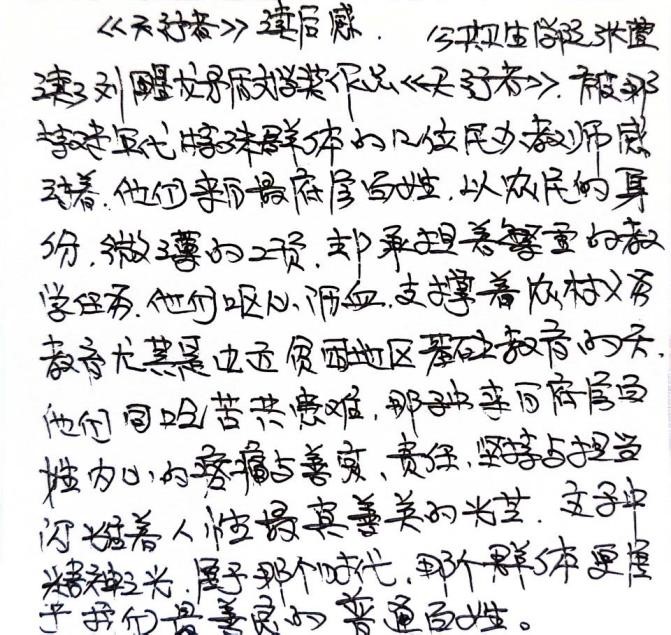 《天行者》读后感. 公共卫生学院 张莹
读了刘醒龙矛盾文学奖作品《天行者》.被那
特定年代特殊群体的几位民办教师感
动着.他们来自最底层百姓.以农民的身
份.微薄的工资.却承担着繁重的教
学任务.他们呕心沥血.支撑着农村义务
教育尤其是边远贫困地区基础教育的天.
他们同吃苦共患难.那种来自底层百
姓内心的疼痛与善良.责任.坚持与担当
闪耀着人性最真善美的光芒.文字中
精神之光.属于那个时代.那个群体更属
于我们最善良的普通百姓。